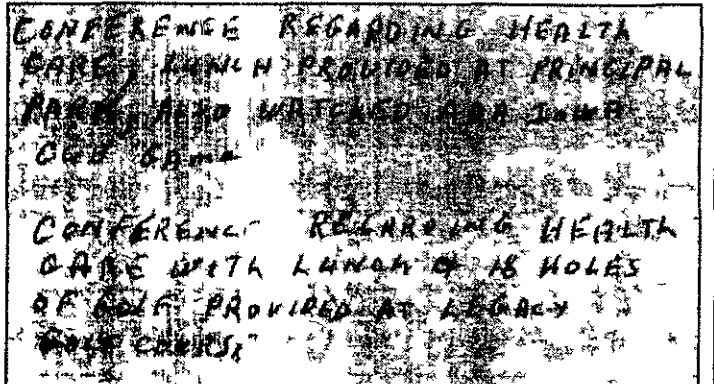 CONFERENCE REGARDING HEALTH
CARE, LUNCH PROVIDED AT PRINCIPAL
PARK, ALSO WATCHED AAA IOWA
CUB GAME
CONFERENCE REGARDING HEALTH
CARE WITH LUNCH & 18 HOLES
OF GOLF PROVIDED AT LEGACY
GOLF COURSE